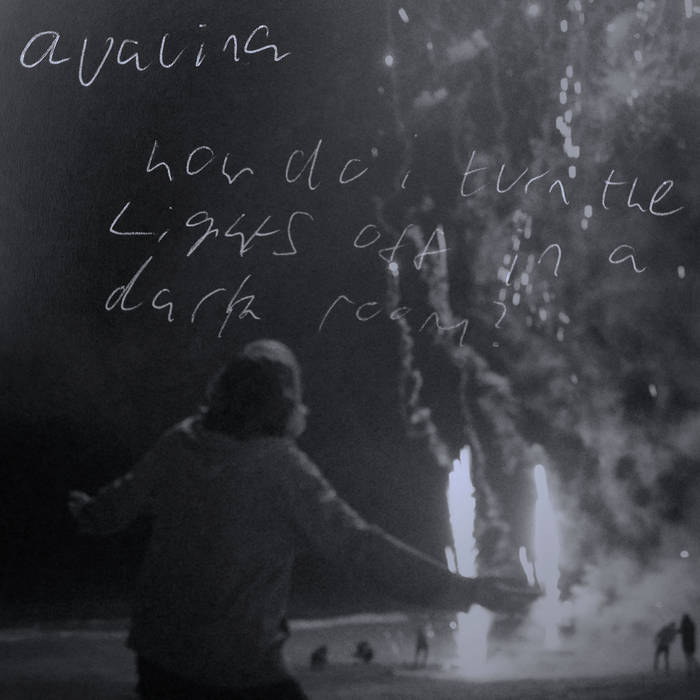 avalina
how do i turn the
Lights off in a
dark room?